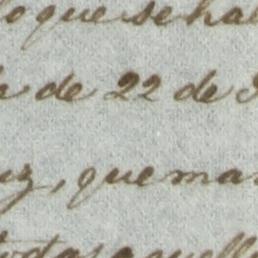 lo que se ha
de 22 de
uz, que ma
todas aquell